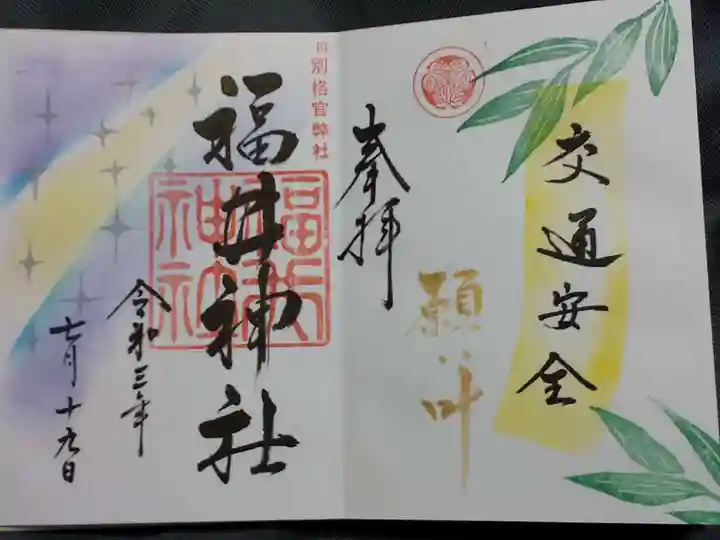 交通安全
願叶
奉拝
旧別格官幣社
福井神社
福井神社
令和三年
七月十九日